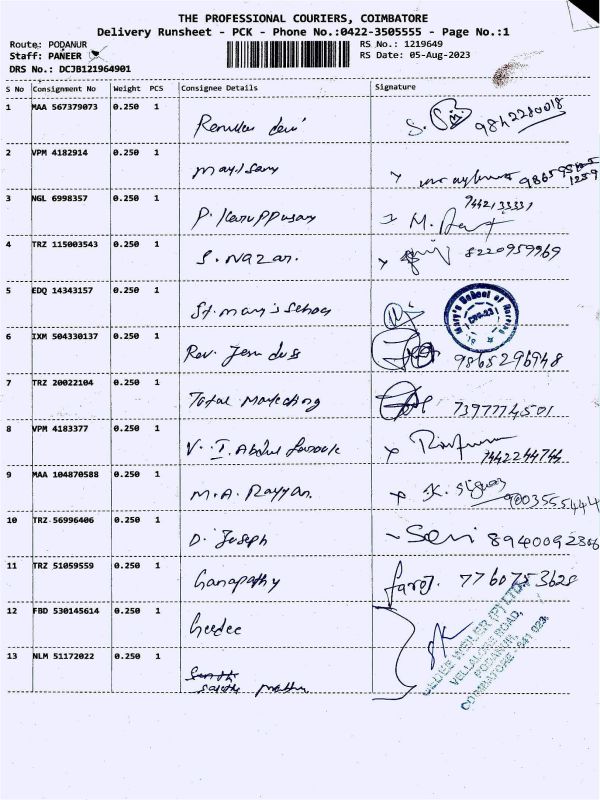 THE PROFESSIONAL COURIERS, COIMBATORE
Delivery Runsheet - PCK - Phone No.:0422-3505555 - Page No.:1
Route: PODANUR RS No.: 1219649
Staff: PANEER RS Date: 05-Aug-2023
DRS No.: DCJB121964901
S No Consignment No Weight PCS Consignee Details Signature
1 MAA 567379073 0.250 1
Devi S. 9842280018
2 VPM 4182914 0.250 1
Mayilsamy
3 NGL 6998357 0.250 1
P. Karuppusamy M.
4 TRZ 115003543 0.250 1
S. Nazar. 8220959969
5 EDQ 14343157 0.250 1
St. mary's School
Mary's School of Nursing
6 IXM 504330137 0.250 1
Rev. Jesu doss 9865296948
7 TRZ 20022104 0.250 1
Total Marketing 7397774501
8 VPM 4183377 0.250 1
V. I. Abdul farook 9442244744
9 MAA 104870588 0.250 1
M.A. Rayyan. K. 9003555444
10 TRZ 56996406 0.250 1
D. Joseph 8940092306
11 TRZ 51059559 0.250 1
Ganapathy 7760753628
12 FBD 530145614 0.250 1
13 NLM 51172022 0.250 1
VELLALORE ROAD,
PODANUR,
COIMBATORE - 641 023.